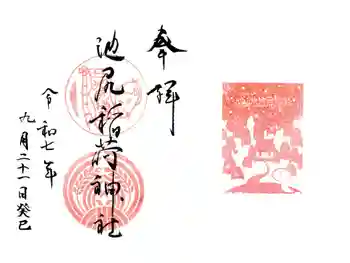 奉拝
池尻稲荷神社
令和七年
九月二十一日癸巳